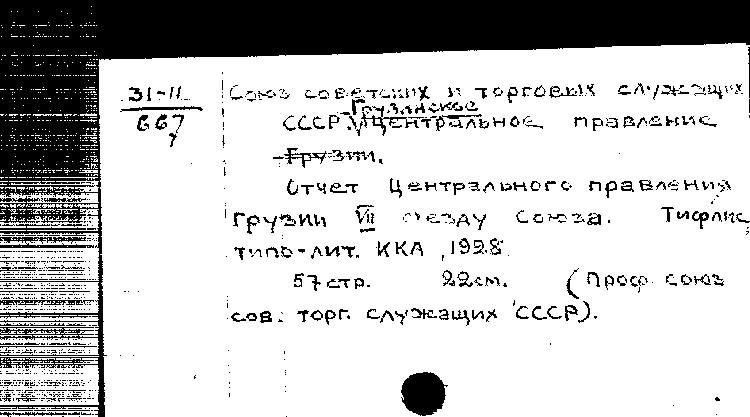 31-11
667
7
Союз советских и торговых служащих
Грузинское
СССР. Центральное правление
Грузии.
Отчет Центрального правления
Грузии VII съезду Союза. Тифлис,
типо-лит. ККА, 1928.
57 стр. 22 см. (Проф. союз
сов. торг. служащих СССР).